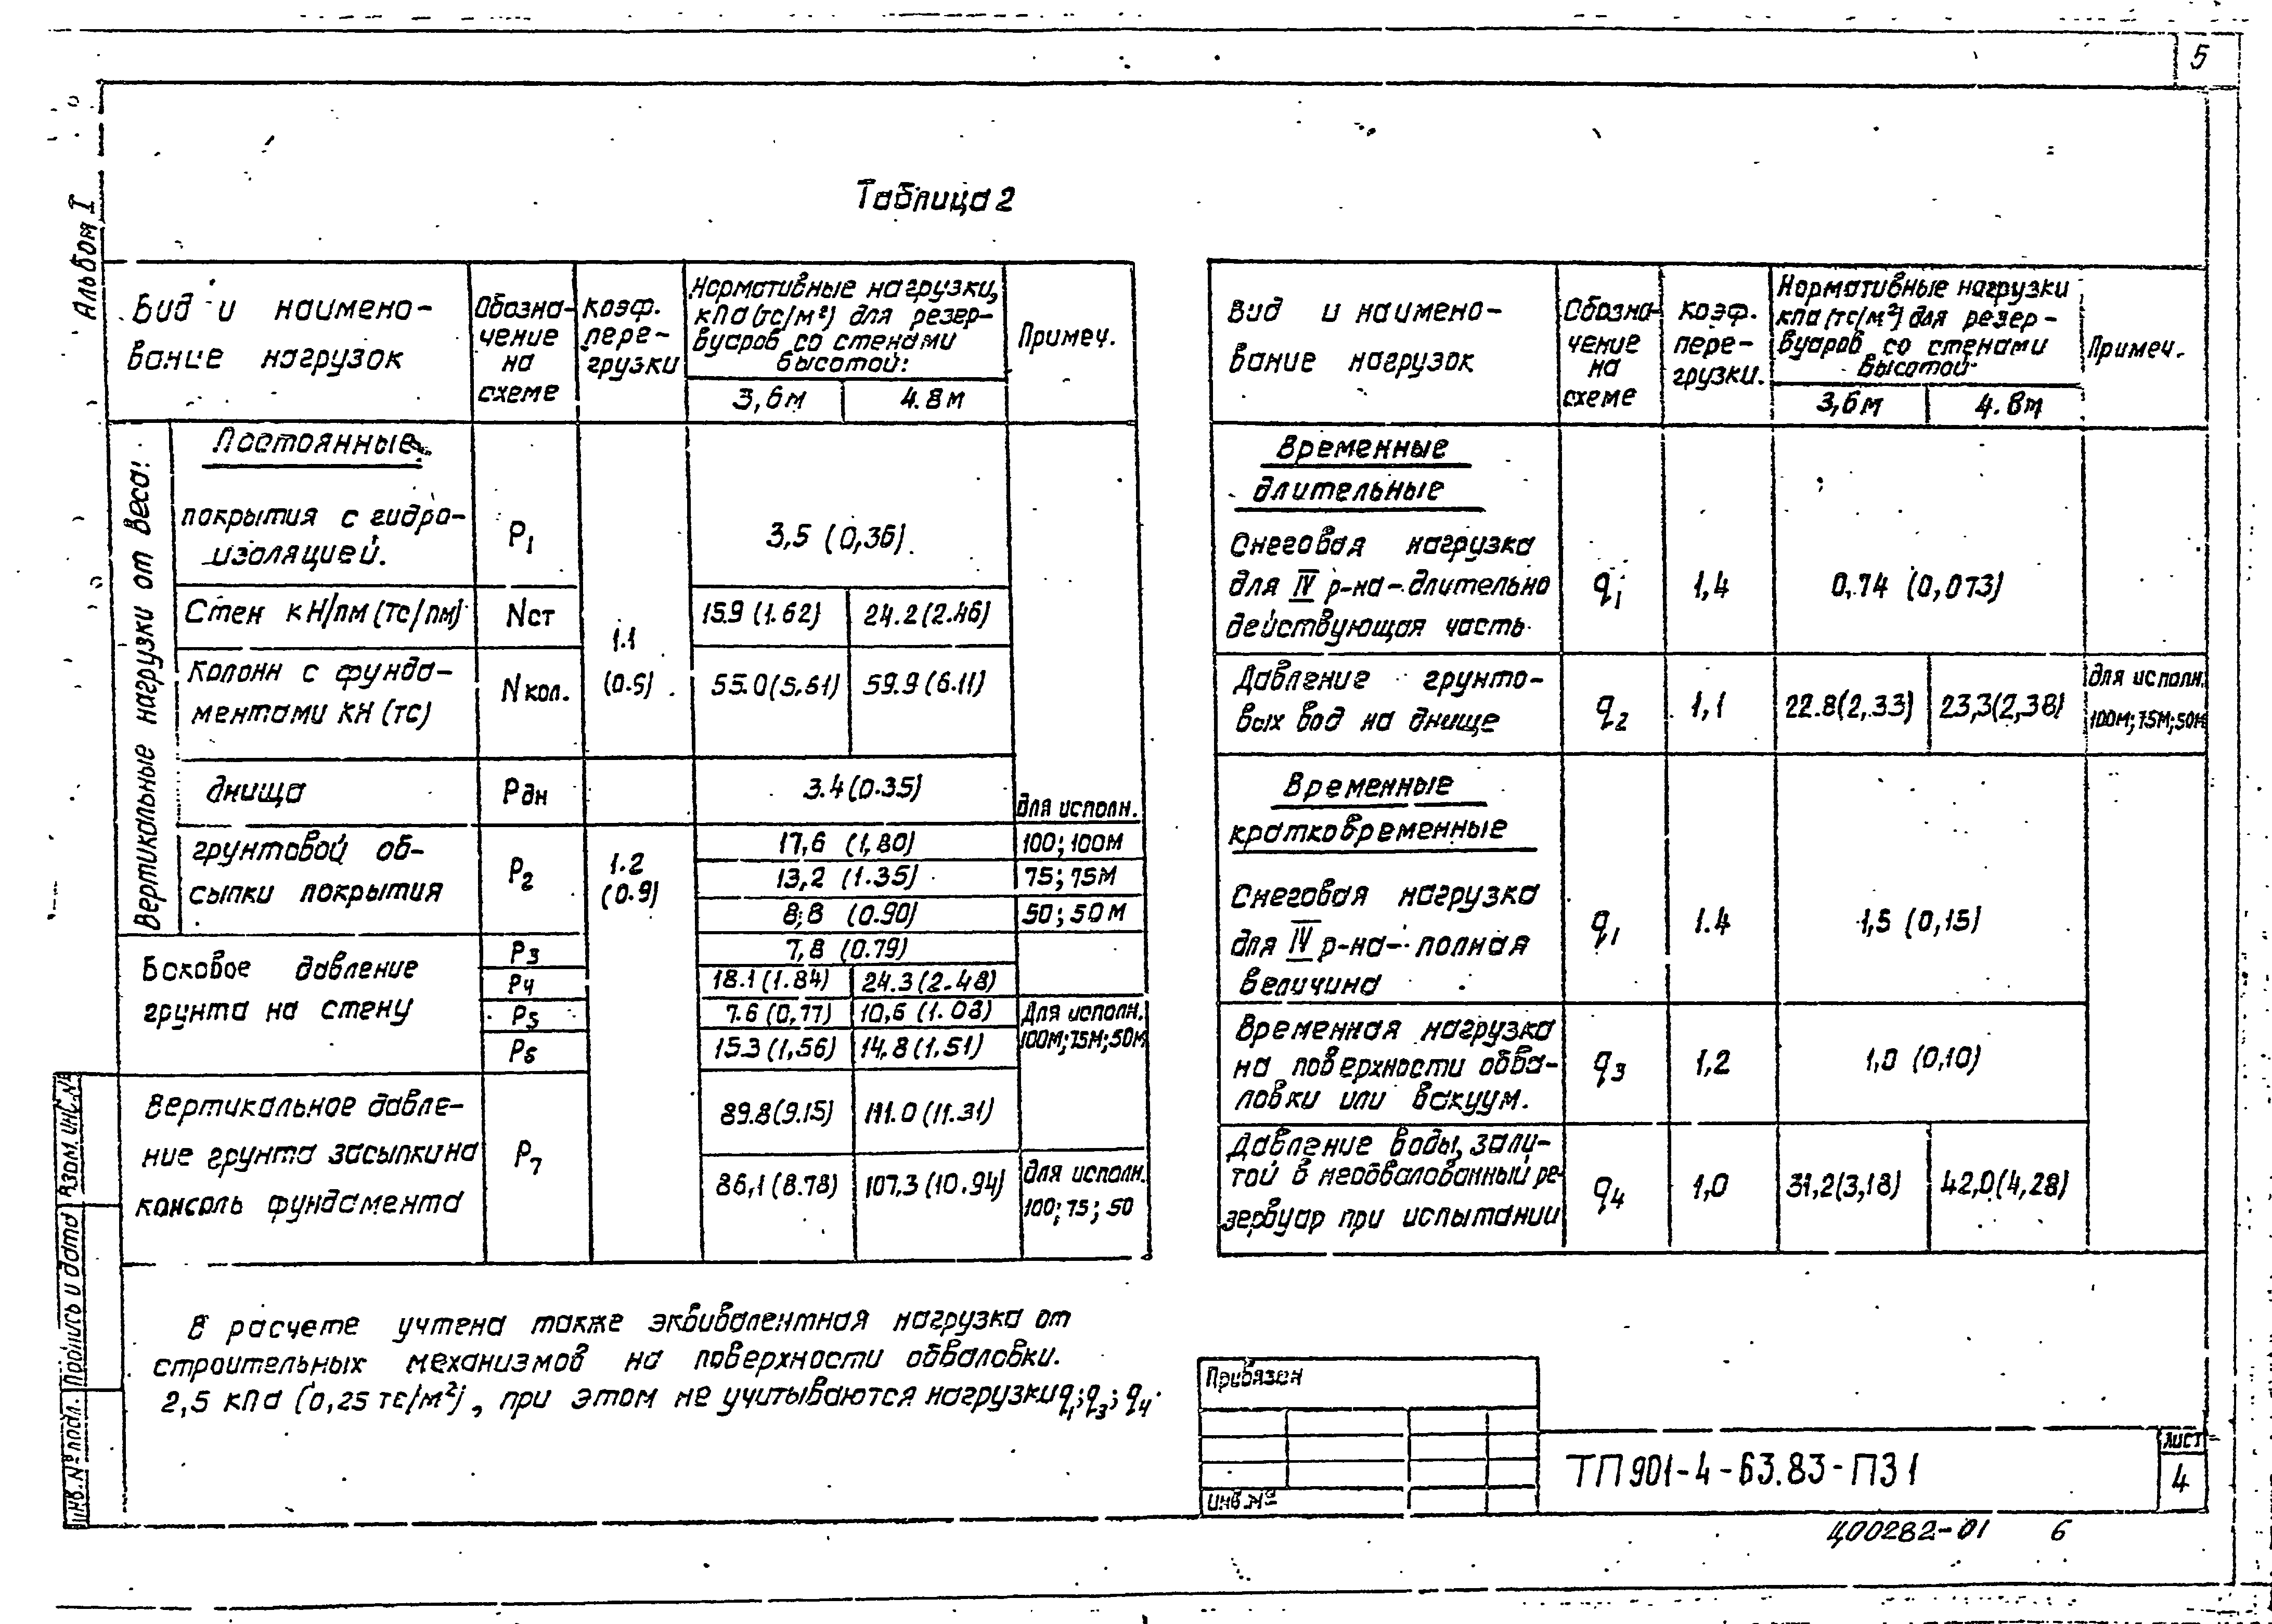 5
Альбом I
Таблица 2
Вид и наимено-
вание нагрузок
Обозна-
чение
на
схеме
Коэф.
пере-
грузки
Нормативные нагрузки,
кПа (тс/м²) для резер-
вуаров со стенами
высотой:
3,6м
4.8м
Примеч.
Вертикальные нагрузки от веса:
Постоянные
покрытия с гидро-
изоляцией.
P1
3,5 (0,36).
Стен кН/пм (тс/пм)
Nст
15.9 (1.62)
24.2 (2.46)
1.1
(0.9)
Колонн с фунда-
ментами кН (тс)
Nкол.
55.0 (5.61)
59.9 (6.11)
днища
Pдн
3.4 (0.35)
для исполн.
грунтовой об-
сыпки покрытия
P2
1.2
(0.9)
17,6 (1,80)
100; 100м
13,2 (1.35)
75; 75м
8,8 (0.90)
50; 50м
Боковое давление
грунта на стену
P3
7,8 (0.79)
P4
18.1 (1.84)
24.3 (2.48)
P5
7.6 (0,77)
10,6 (1.08)
P6
15.3 (1,56)
14,8 (1.51)
Для исполн.
100м; 75м; 50м
Вертикальное давле-
ние грунта засыпки на
консоль фундамента
P7
89.8 (9.15)
111.0 (11.31)
86,1 (8.78)
107,3 (10.94)
для исполн.
100; 75; 50
Вид и наимено-
вание нагрузок
Обозна-
чение
на
схеме
Коэф.
пере-
грузки.
Нормативные нагрузки
кПа (тс/м²) для резер-
вуаров со стенами
высотой
3,6м
4.8м
Примеч.
Временные
длительные
Снеговая нагрузка
для IV р-на - длительно
действующая часть
q1
1,4
0,74 (0,073)
Давление грунто-
вых вод на днище
q2
1,1
22.8 (2,33)
23,3 (2,38)
для исполн.
100м; 75м; 50м
Временные
кратковременные
Снеговая нагрузка
для IV р-на - полная
величина
q1
1.4
1,5 (0,15)
Временная нагрузка
на поверхности обва-
ловки или вакуум.
q3
1,2
1,0 (0,10)
Давление воды, зали-
той в необвалованный ре-
зервуар при испытании
q4
1,0
31,2 (3,18)
42,0 (4,28)
В расчете учтена также эквивалентная нагрузка от
строительных механизмов на поверхности обваловки.
2,5 кПа (0,25 тс/м²), при этом не учитываются нагрузки q1; q3; q4.
Привязан
Инв.№
ТП 901-4-63.83-ПЗ 1
Лист
4
Ц00282-01 6
Инв. № подл.
Подпись и дата
Взам. инв. №